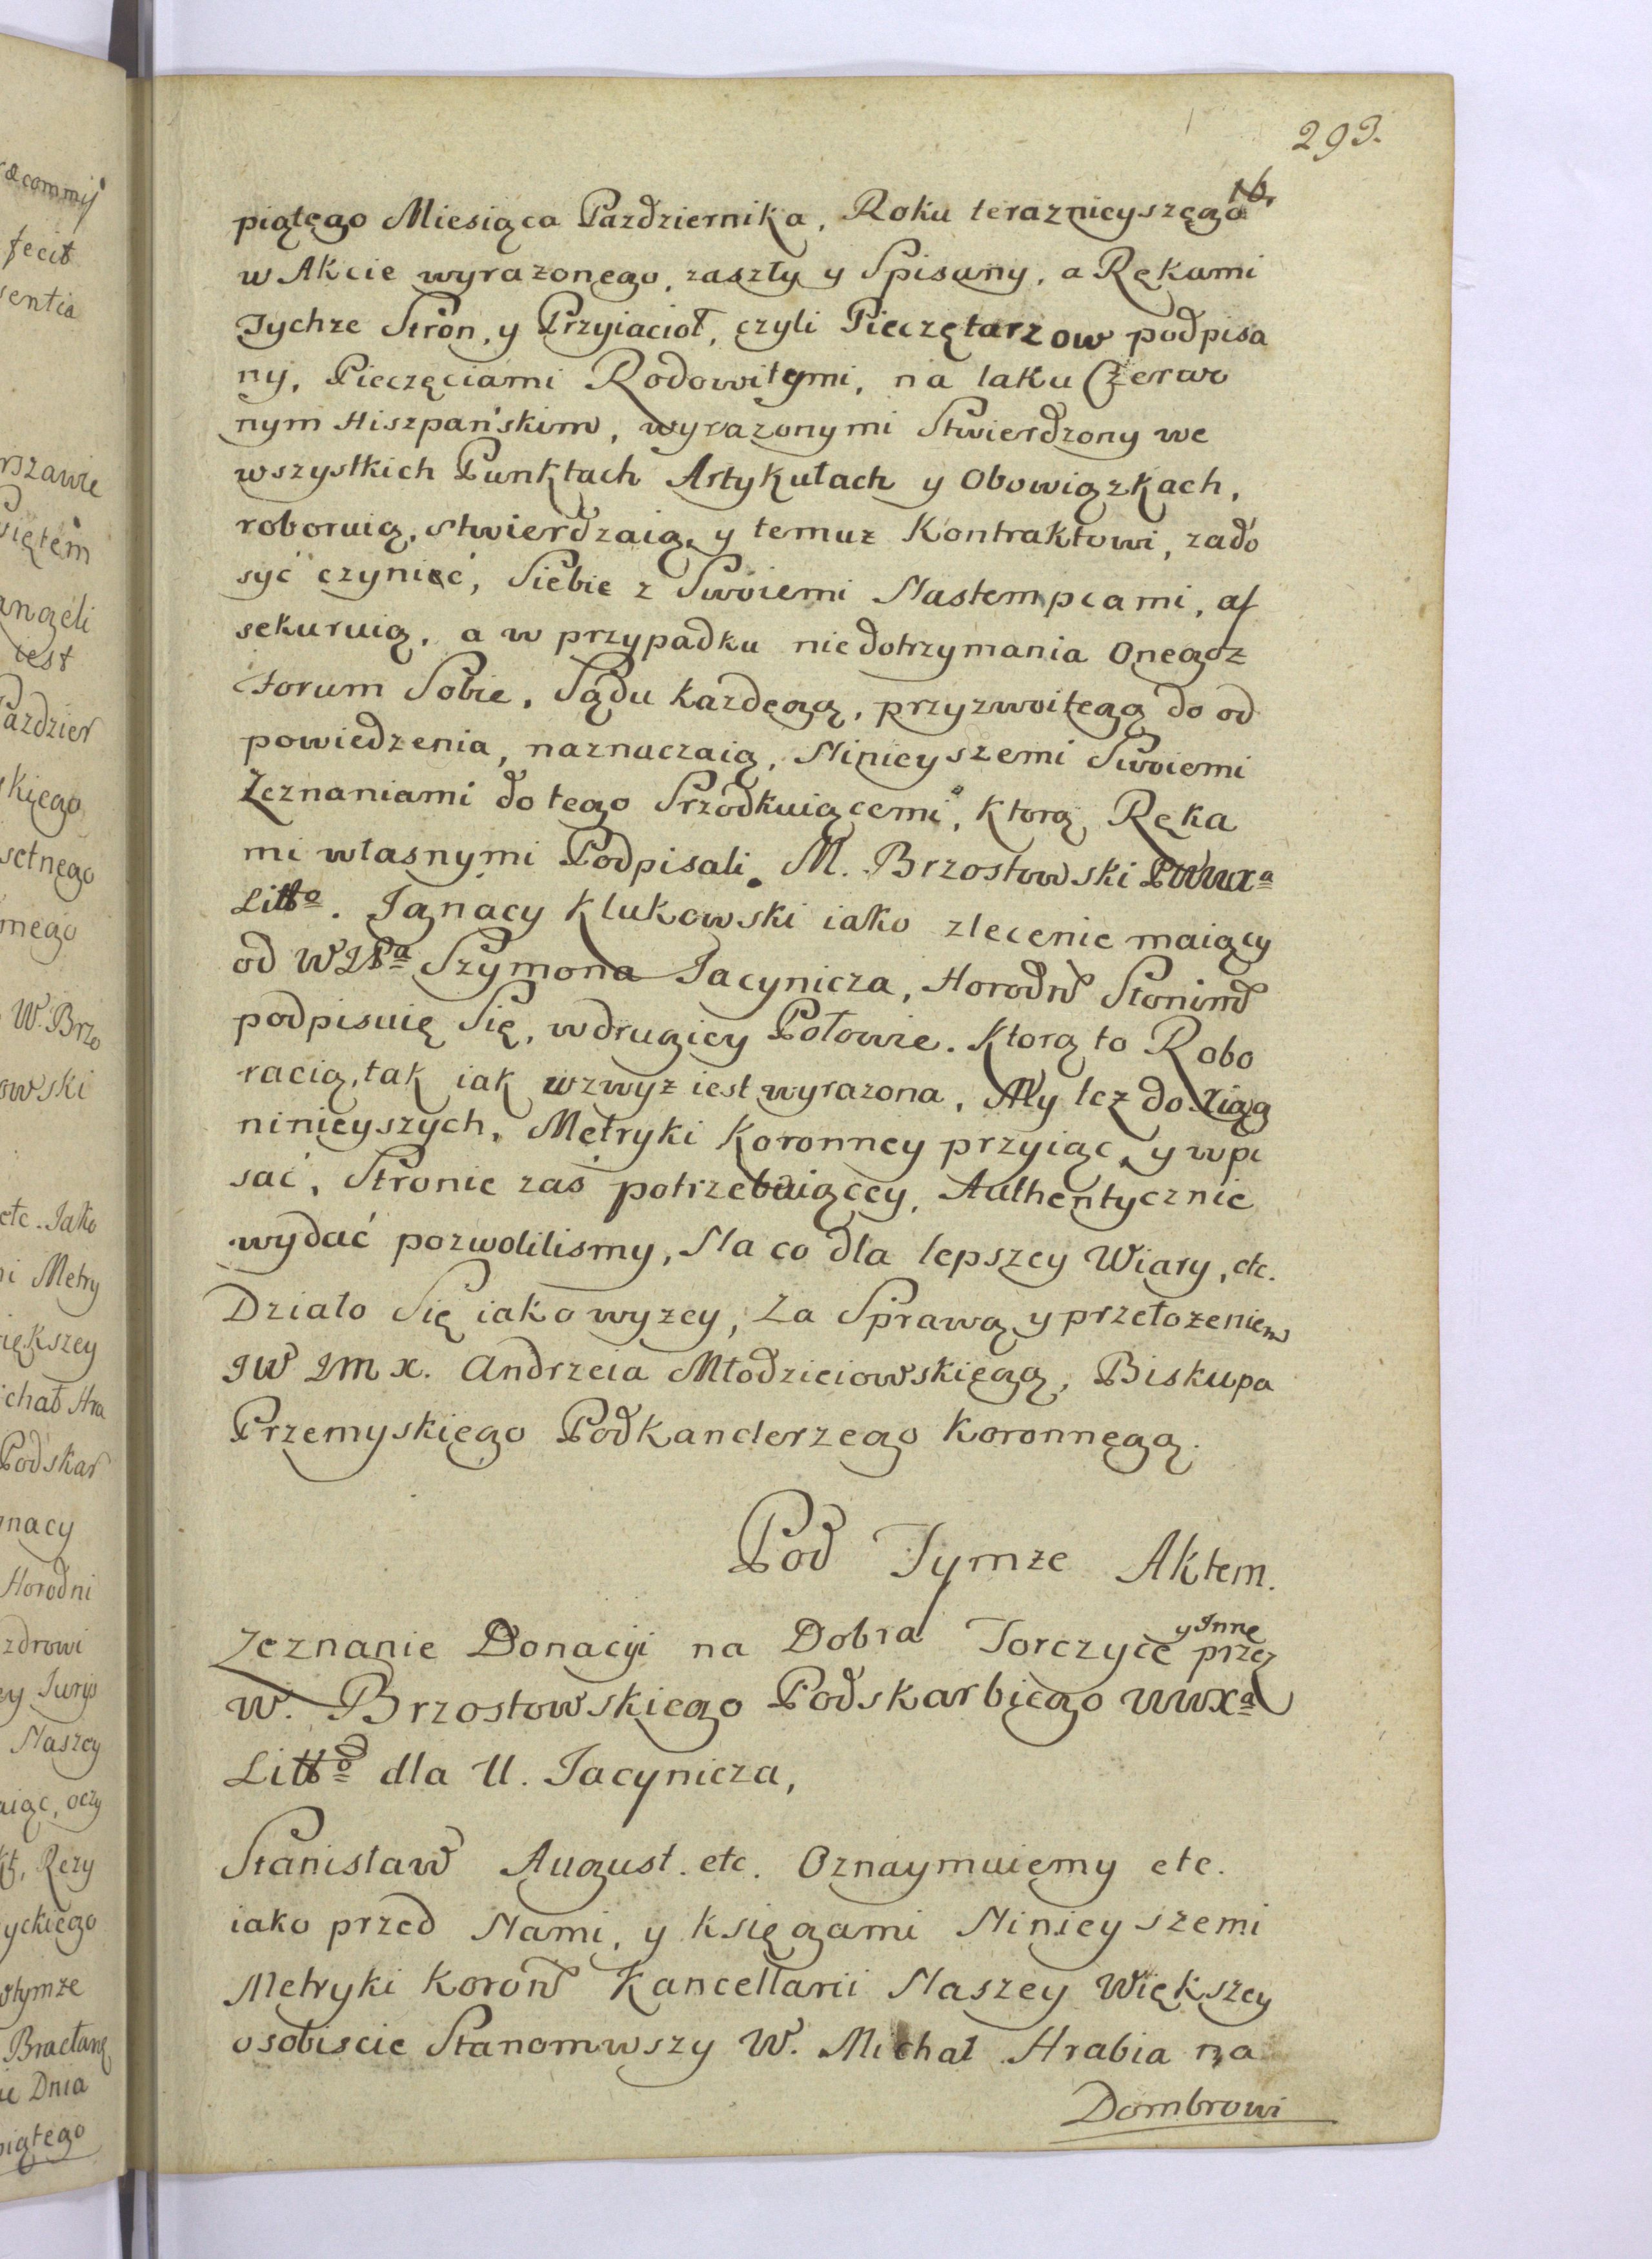 293.
piątęgo Miesiąca Pazdziernika, Roku teraznieyszęgo
w Akcie wyrazonego, zaszły y Spisany, a Rękami
Tychze Stron, y Przyiacioł, czyli Pieczętarzow podpisa
ny, Pieczęciami Rodowitymi, na laku Czerwo
nym Hiszpańskim, wyrazonymi Stwierdzony we
wszystkich Punktach Artykułach y Obowiązkach,
roboruią, stwierdzaią, y temuz Kontraktowi, zado
syć czynieć, Siebie z Swoiemi Nastempcami, as
sekuruią, a w przypadku niedotrzymania Onegoz
Forum Sobie, Sądu kazdęgą, przyzwoitegą do od
powiedzenia, naznaczaią, Ninieyszemi Swoiemi
Zeznaniami do tego Srzodkuiącemi, ktorą Ręka
mi własnymi Podpisali. M. Brzostowski PWWXa
Litto. Ignacy Klukowski iako zlecenie maiący
od WJPa Szymona Jacynicza, Horodn Słonimd
podpisuię Się, w drugiey Połowie. Ktorą to Robo
racią, tak iak wzwyz iest wyrazona, My tez do Xiąg
ninieyszych, Mętryki Koronney przyiąc, y wpi
sać, Stronie zas potrzebuiącey, Authentycznie
wydać pozwolilismy, Na co dla lepszey Wiary, etc.
Działo Się iako wyzey, Za Sprawą y przełozeniem
JW JM X. Andrzeia Młodzieiowskięgą, Biskupa
Przemyskięgo Podkanclerzego Koronnęgą.
Pod Tymze Aktem.
Zeznanie Donacyi na Dobra Torczyce y Inne przez
W. Brzostowskiego Podskarbięgo WWXa
Litto dla U. Jacynicza,
Stanisław August. etc. Oznaymuięmy etc.
iako przed Nami, y Księgami Ninieyszemi
Metryki Koron Kancellarii Naszey Większey
osobiscie Stanomwszy W. Michał Hrabia na
Dombrowi